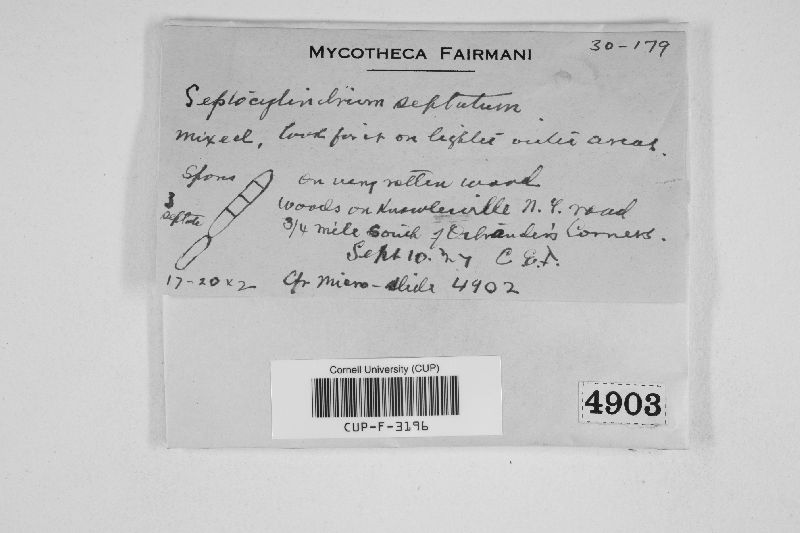 MYCOTHECA FAIRMANI
30-179
Septocylindrium septatum
mixed, look for it on lighter outer areas.
Spores
3 septate
17-20 x 2
on very rotten wood
woods on Knowlesville N.Y. road
3/4 mile south of Corners.
Sept 10. 27 C E F.
Cfr micro-slide 4902
Cornell University (CUP)
CUP-F-3196
4903